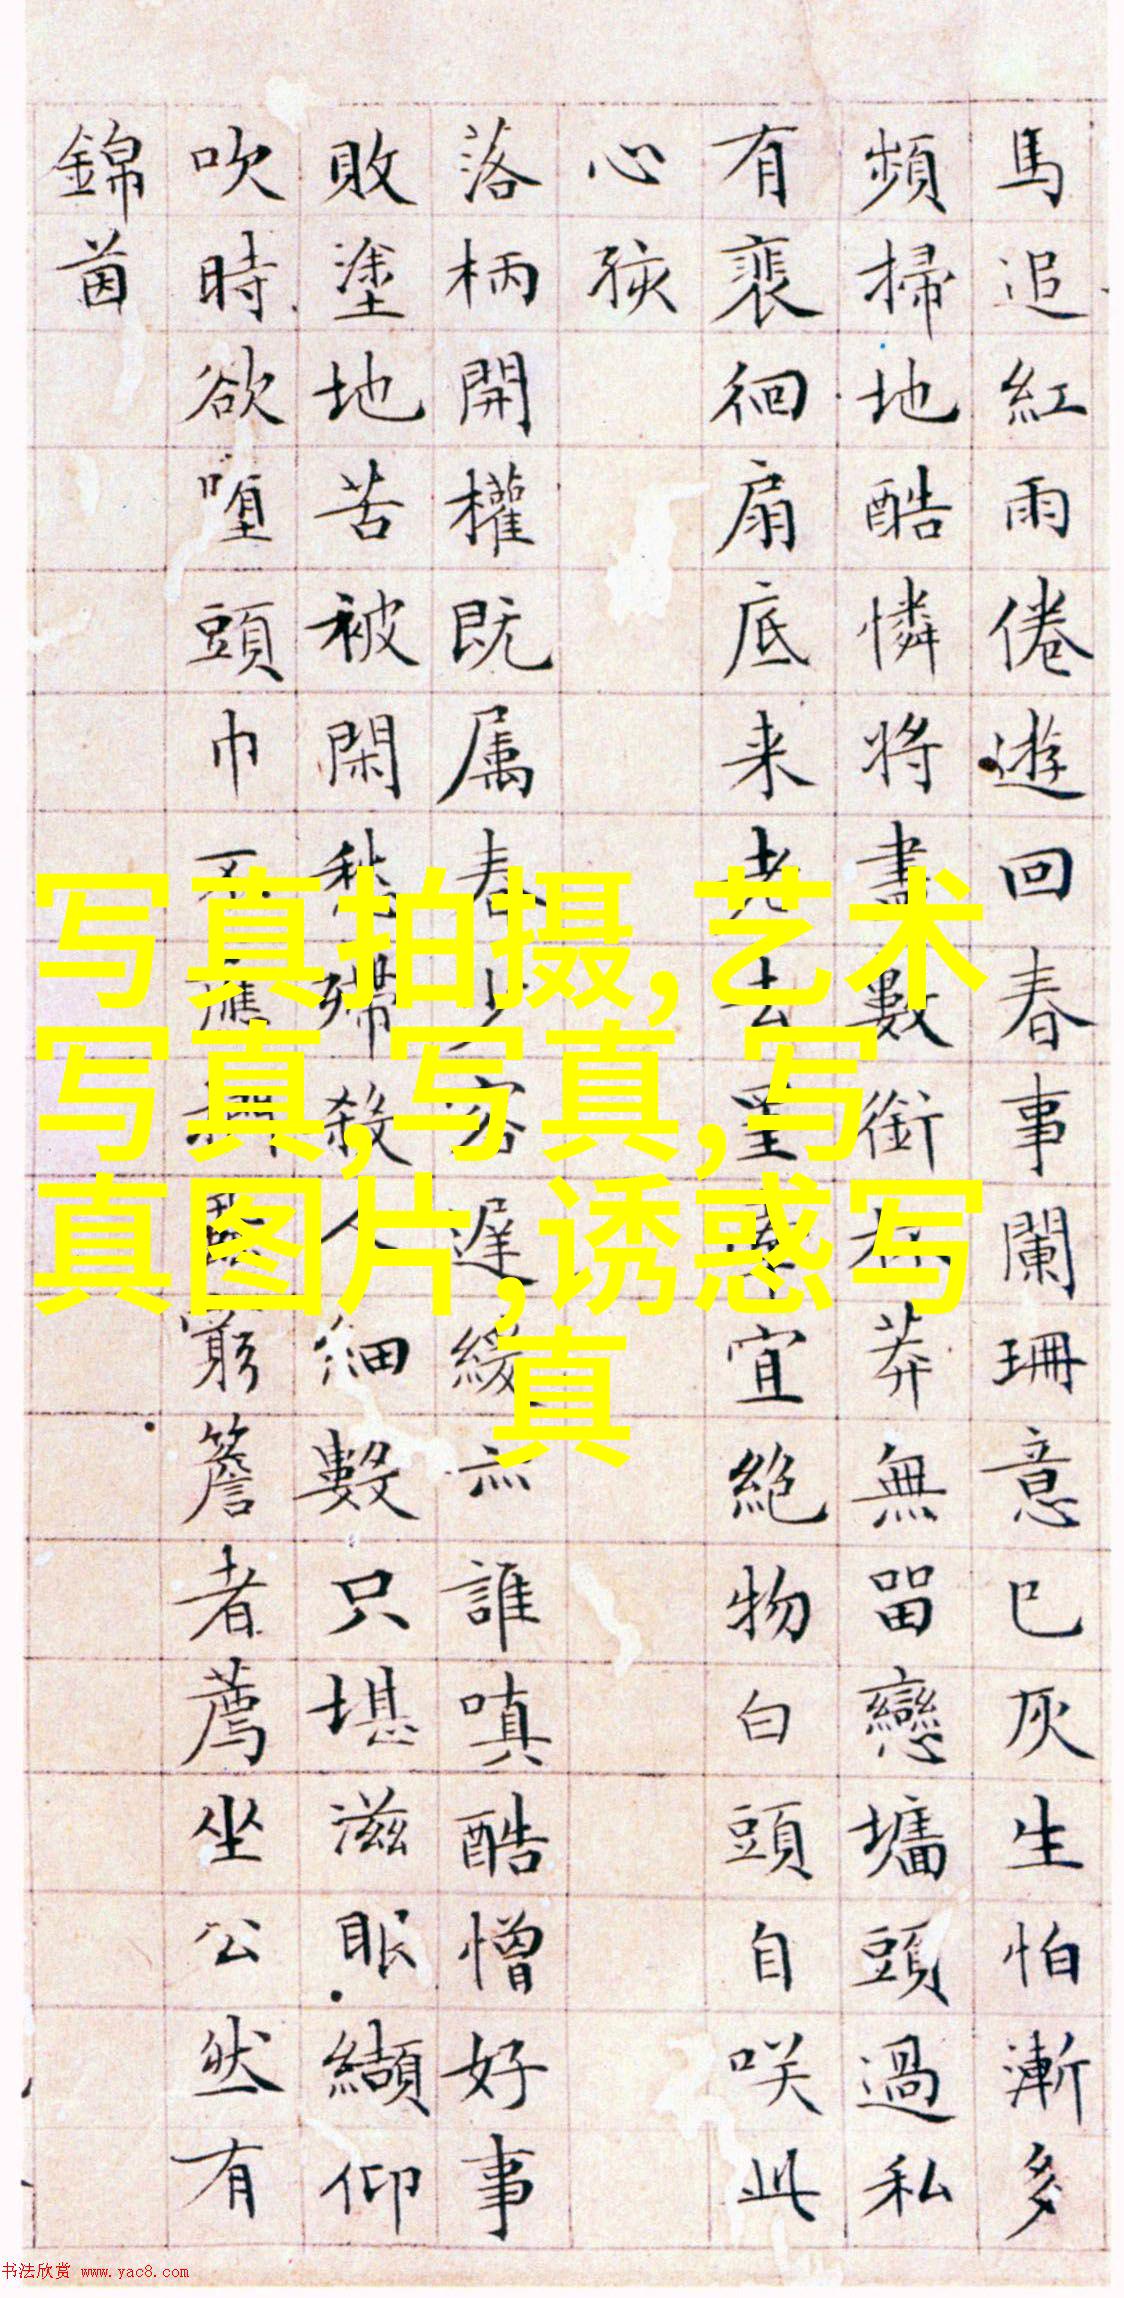 馬追紅雨倦遊回春事闌珊意已灰生怕漸多
頻掃地酷憐將盡數銜杯莽無留戀墻頭過私
有裴徊扇底来老去望春宜絶物白頭自咲此
心孩
落柄開權既属春少容遅緩亦誰嗔酷憎好事
敗塗地苦被閑愁殢殺人細數只堪滋眼纈仰
吹時欲墮頭巾不應藉窮簷者薦坐公然有
錦茵
写真拍摄,艺术
写真,写真,写
真图片,诱惑写
真
书法欣赏 www.yac8.com